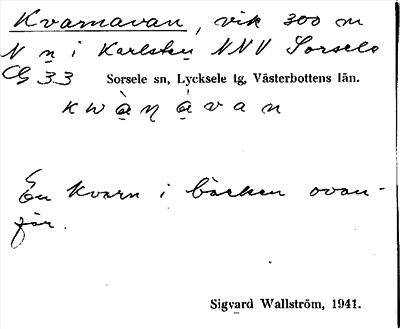 Kvarnavan, vik 300 m
N n i Karlsten NNV Sorsele
33 Sorsele sn, Lycksele tg, Västerbottens län.
kwạ̀ṇạ́van
En kvarn i bäcken ovan-
för.
Sigvard Wallström, 1941.